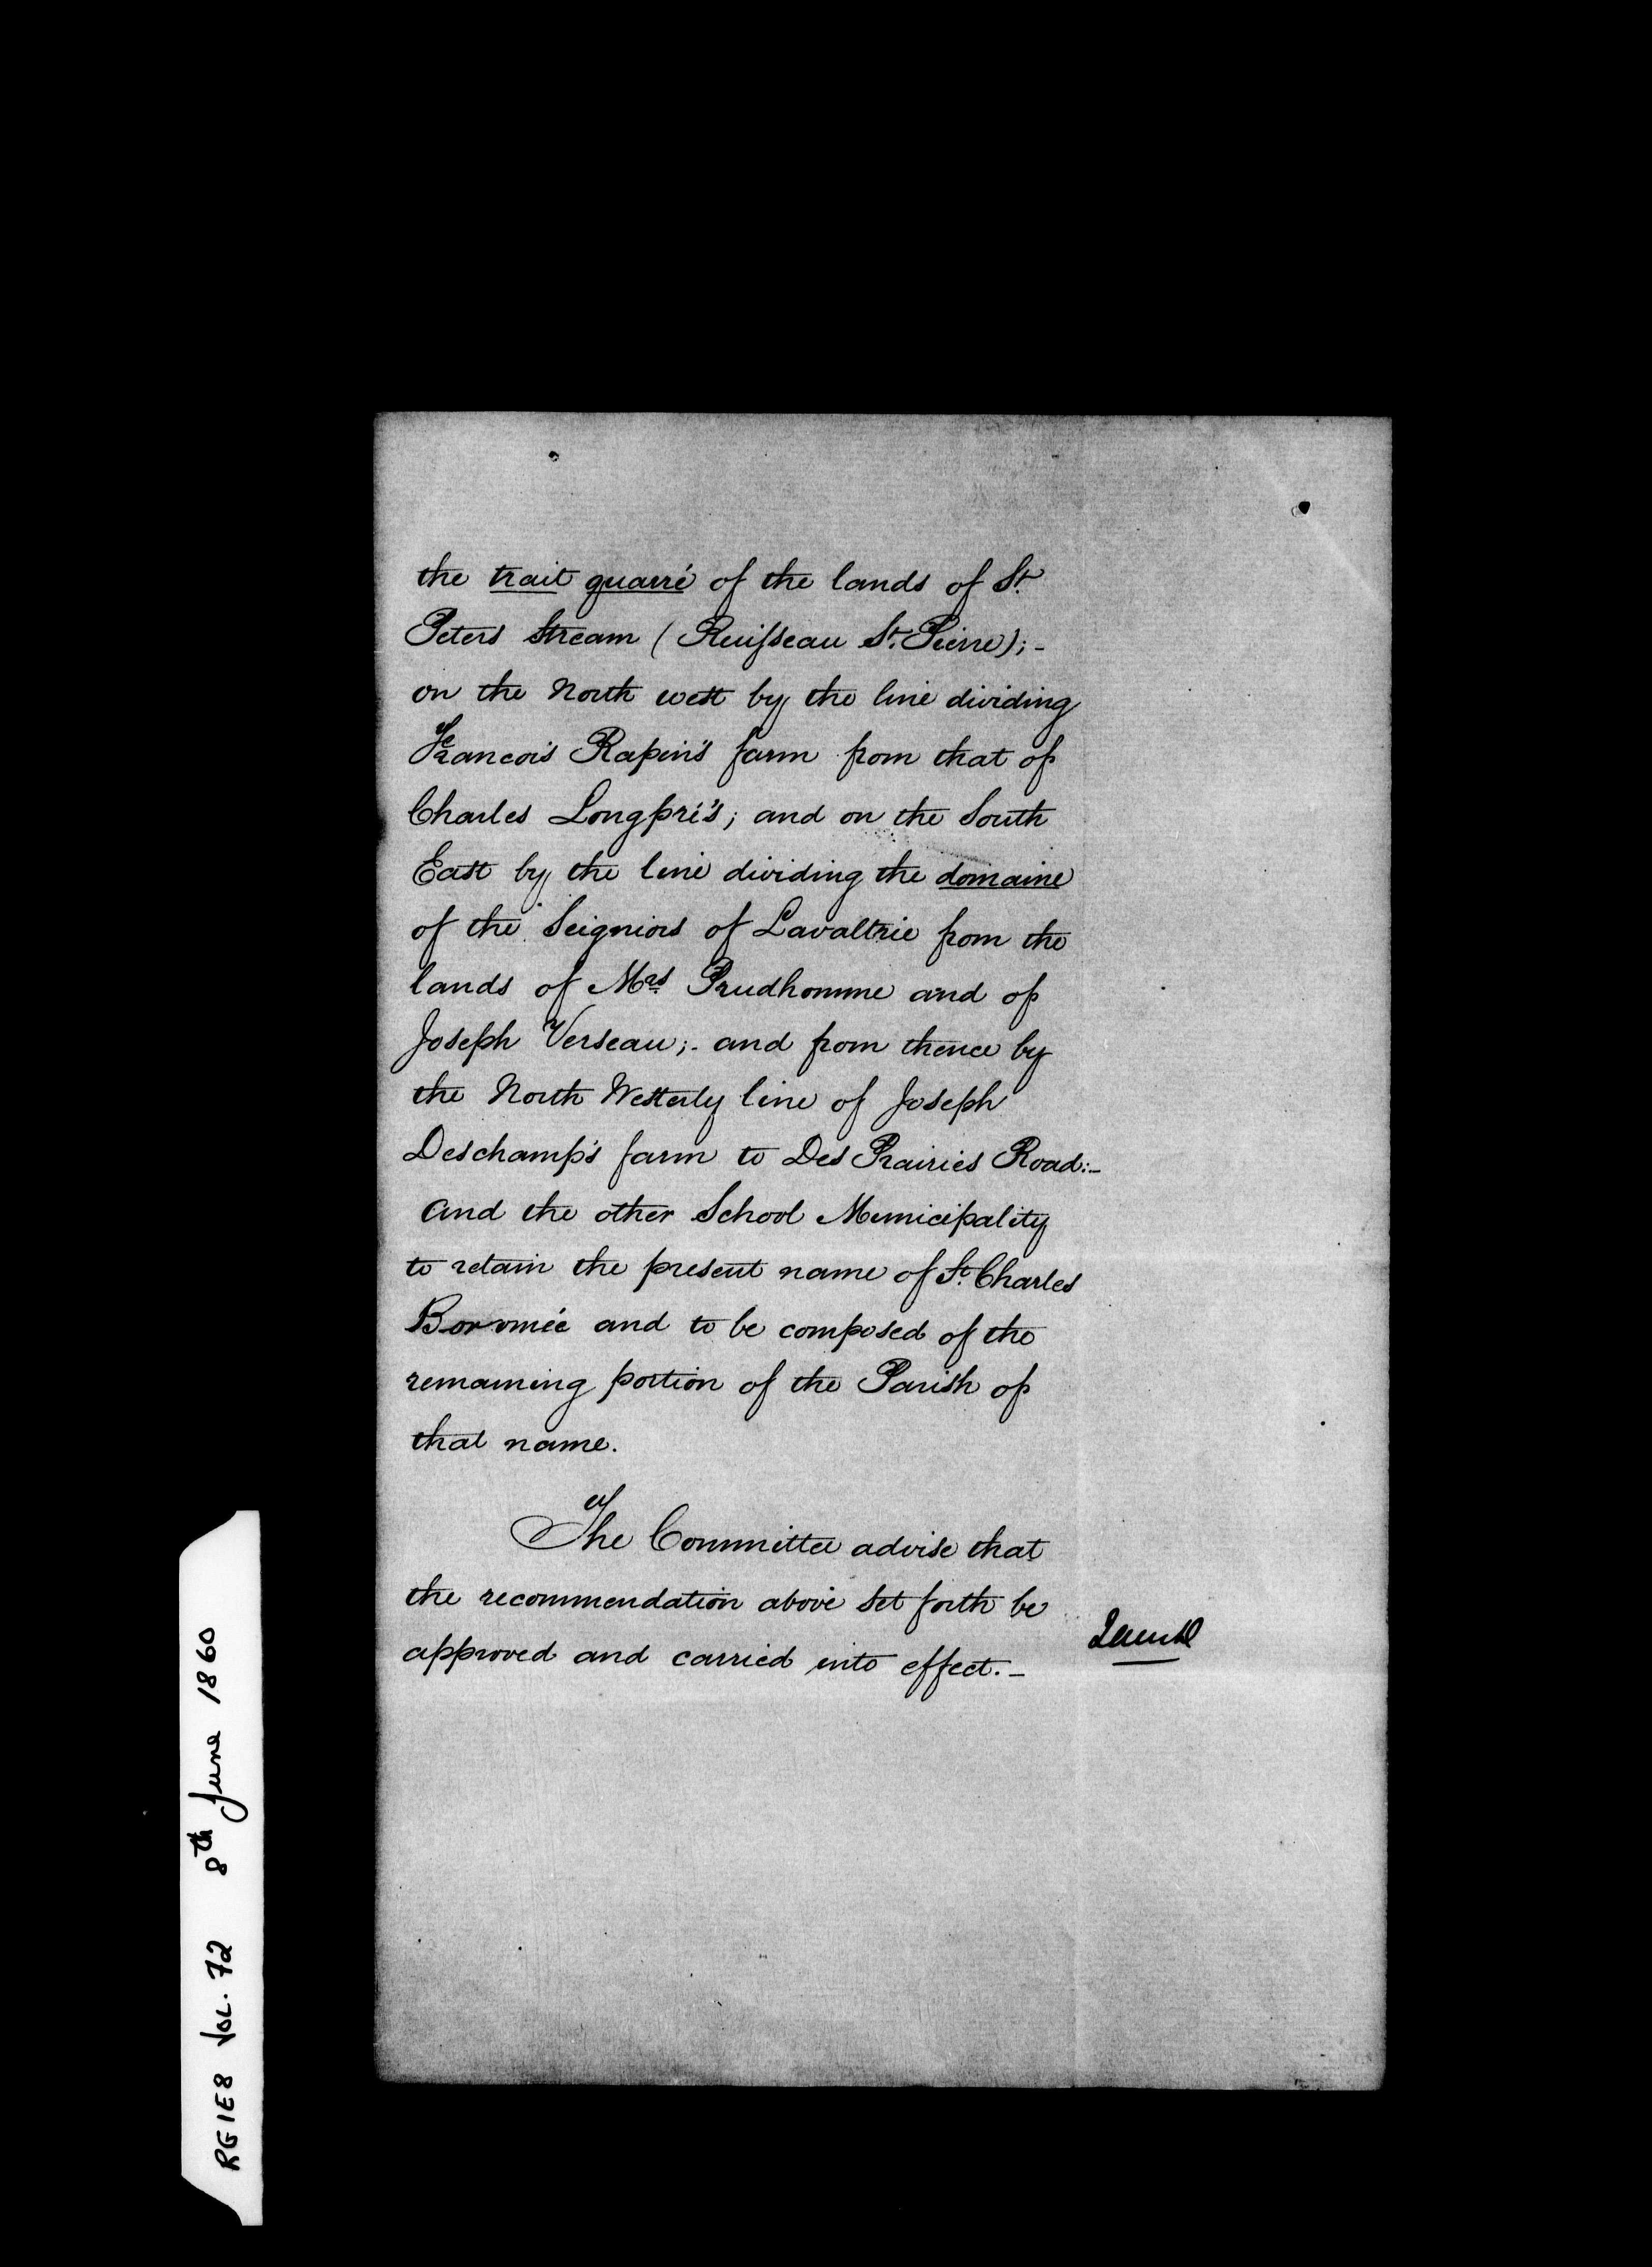 the trait quarré of the lands of St.
Peters Stream (Ruisseau St. Pierre);-
on the North west by the line dividing
Francois Rapin's farm from that of
Charles Longpré's; and on the South
East by the line dividing the domaine
of the Seigniors of Lavaltrie from the
lands of Mrs Prudhomme and of
Joseph Verseau;- and from thence by
the North Westerly line of Joseph
Deschamp's farm to Des Prairies Road:-
And the other School Municipality
to retain the present name of St. Charles
Boromée and to be composed of the
remaining portion of the Parish of
that name.
The Committee advise that
the recommendation above set forth be
approved and carried into effect.-
RG1E8 VOL. 72 8th June 1860